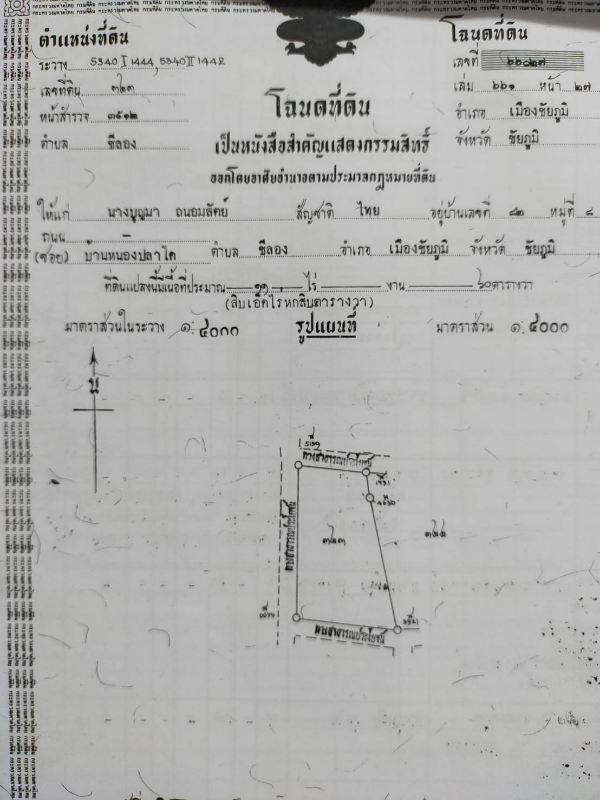 ตำแหน่งที่ดิน
โฉนดที่ดิน
ระวาง 5340 I 1444, 5340 II 1442
เลขที่ ๖๖๐๒๗
เลขที่ดิน ๓๒๓
เล่ม ๖๖๑ หน้า ๒๗
หน้าสำรวจ ๓๕๑๒
อำเภอ เมืองชัยภูมิ
โฉนดที่ดิน
ตำบล ชีลอง
จังหวัด ชัยภูมิ
เป็นหนังสือสำคัญแสดงกรรมสิทธิ์
ออกโดยอาศัยอำนาจตามประมวลกฎหมายที่ดิน
ให้แก่ นางบุญมา ถนอมสัตย์ สัญชาติ ไทย อยู่บ้านเลขที่ ๘๒ หมู่ที่ ๘
ถนน
(ซอย) บ้านหนองปลาโด ตำบล ชีลอง อำเภอ เมืองชัยภูมิ จังหวัด ชัยภูมิ
ที่ดินแปลงนี้มีเนื้อที่ประมาณ ๑๑ ไร่ งาน ๖๐ ตารางวา
(สิบเอ็ดไร่หกสิบตารางวา)
มาตราส่วนในระวาง ๑:๔๐๐๐
รูปแผนที่
มาตราส่วน ๑:๔๐๐๐
น
ทางสาธารณประโยชน์
ทางสาธารณประโยชน์
๓๒๓
๓๒๔
ทางสาธารณประโยชน์